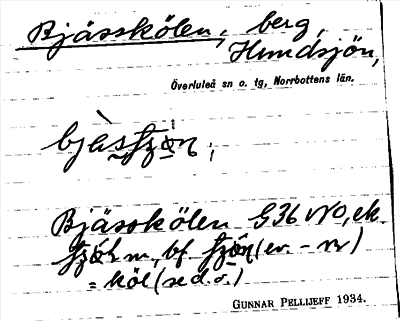 Bjässkölen, berg,
Hundsjön,
Överluleå sn o. tg, Norrbottens län.
Bjässkölen G36 NO, ek.
m, bf (ev. - n)
= köl (se d. o.)
GUNNAR PELLIJEFF 1934.